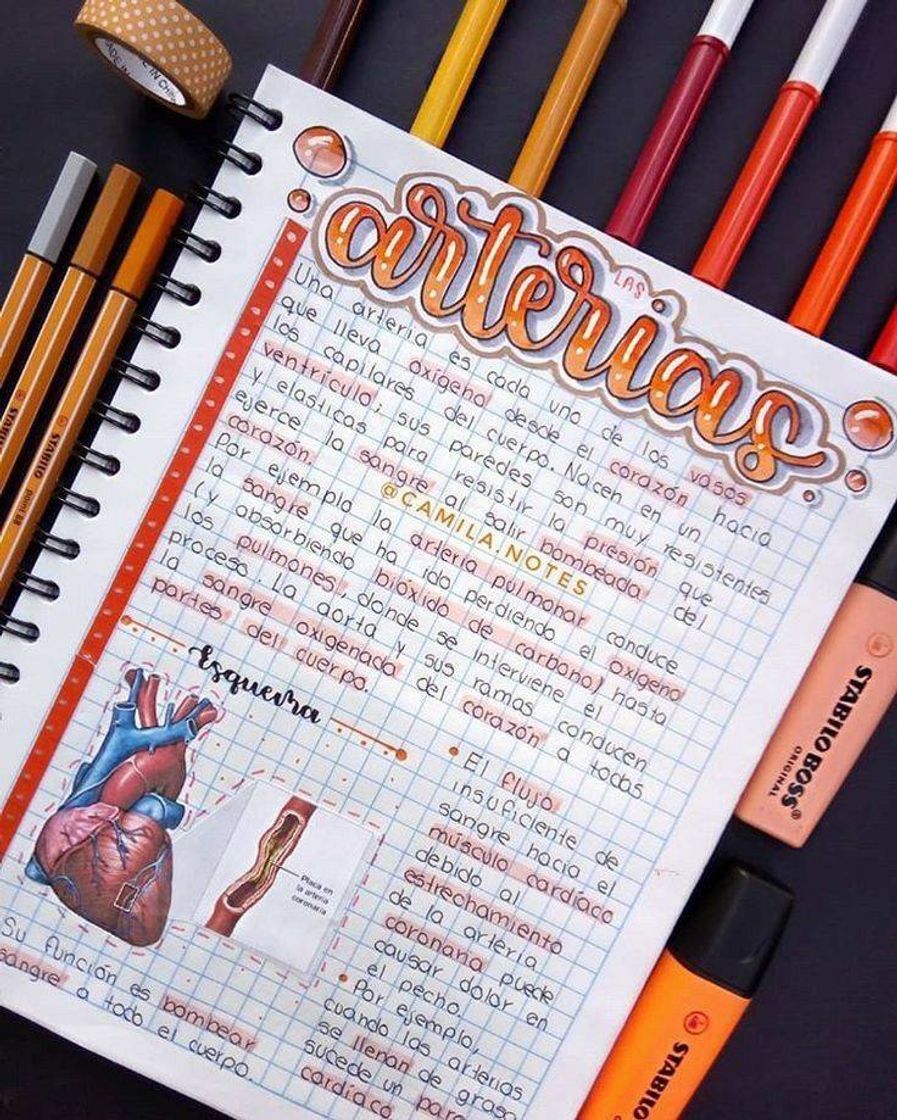 LAS
arterias
Una arteria es cada uno de los vasos
que lleva oxígeno desde el corazón hacia
los capilares del cuerpo. Nacen en un
ventrículo; sus paredes son muy resistentes
y elasticas para resistir la presión que
ejerce la sangre al salir bombeada del
corazón.
@CAMILA.NOTES
Por ejemplo la arteria pulmonar conduce
la sangre que ha ido perdiendo el oxígeno
(y absorbiendo bióxido de carbono) hasta
los pulmones, donde se interviene el
proceso. La aorta y sus ramas conducen
la sangre oxigenada del corazón a todas
partes del cuerpo.
Esquema
Placa en
la arteria
coronaria
Su función es bombear
sangre a todo el cuerpo.
• El flujo
insuficiente de
sangre hacia el
músculo cardíaco
debido al
estrechamiento
de la arteria
coronaria puede
causar dolor en
el pecho.
• Por ejemplo,
cuando las arterias
se llenan de grasa
sucede un paro
cardíaco
STABILO
point 88
STABILO
STABILO BOSS
ORIGINAL
STABILO